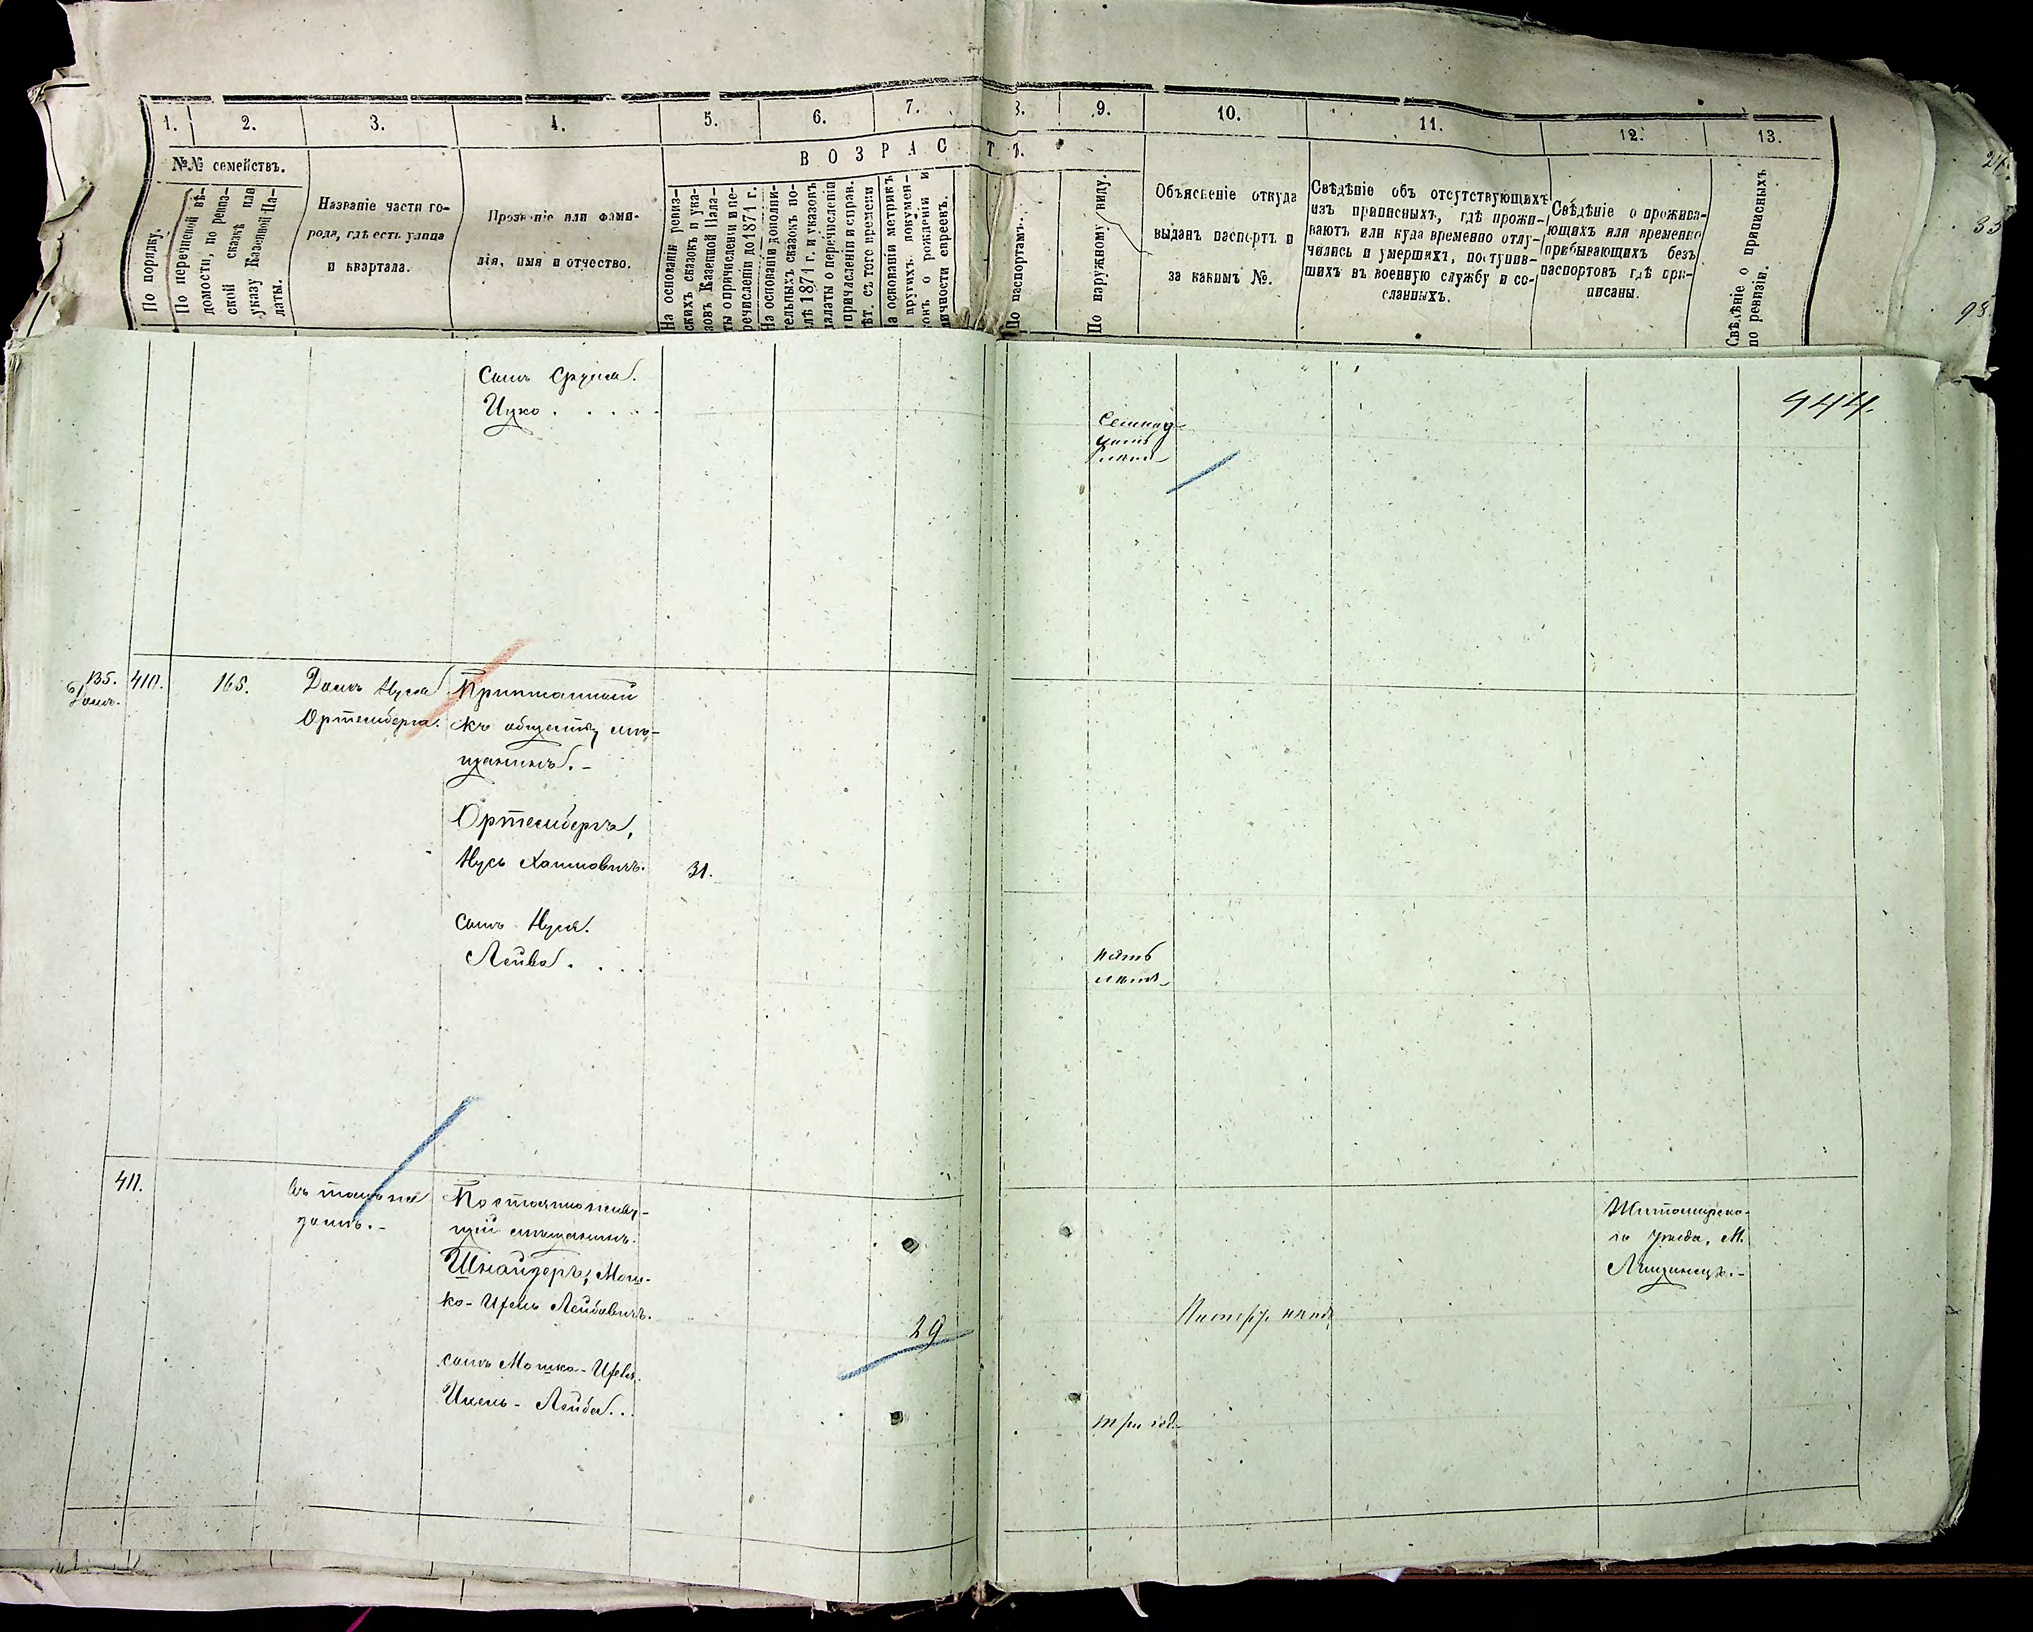 1. 2. 3. 4. 5. 6. 7. 8. 9. 10. 11. 12. 13.
№№ семействъ.
В О З Р А С Т Ъ.
По порядку.
По перечневой вѣ-
домости, по ревиз-
ской сказкѣ или
указу Казенной Па-
латы.
Названіе части го-
рода, гдѣ есть улица
и квартала.
Прозваніе или фами-
лія, имя и отчество.
На основаніи ревиз-
скихъ сказокъ и ука-
зовъ Казенной Пала-
ты о причисленіи и пе-
речисленіи до 1871 г.
На основаніи дополни-
тельныхъ сказокъ по-
слѣ 1871 г. и указовъ
палаты о перечисленіи
причисленіи и справ.
лѣт. съ того времени
На основаніи метрикъ
другихъ докумен-
о рожденіи и
личности евреевъ.
По паспортамъ.
По наружному виду.
Объясненіе откуда
выданъ паспортъ и
за какимъ №.
Свѣдѣніе объ отсутствующихъ
изъ приписныхъ, гдѣ прожи-
ваютъ или куда временно отлу-
чились и умершихъ, поступив-
шихъ въ военную службу и со-
сланныхъ.
Свѣдѣніе о прожива-
ющихъ или временно
прибывающихъ безъ
паспортовъ гдѣ при-
писаны.
Свѣдѣніе о приписныхъ
по ревизіи.
944.
Сынъ Сруля.
Ицко
Семнад
цать
лѣтъ
135.
Домъ.
410.
165.
Домъ Нуся
Ортенберга.
Приписанный
къ обществу мѣ-
щанинъ. -
Ортенбергъ,
Нусь Хаимовичъ.
31.
сынъ Нуся.
Лейба
пять
лѣтъ
411.
въ томъ же
домѣ. -
Постоянно живу-
щій мѣщанинъ.
Шнайдеръ, Мош-
ко-
Лейбовичъ.
29
Житомирска-
го уѣзда, М.
сынъ Мошка-
- Лейба
три года